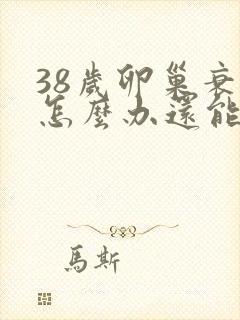 38歲卵巢衰
怎麼办還能
馬斯